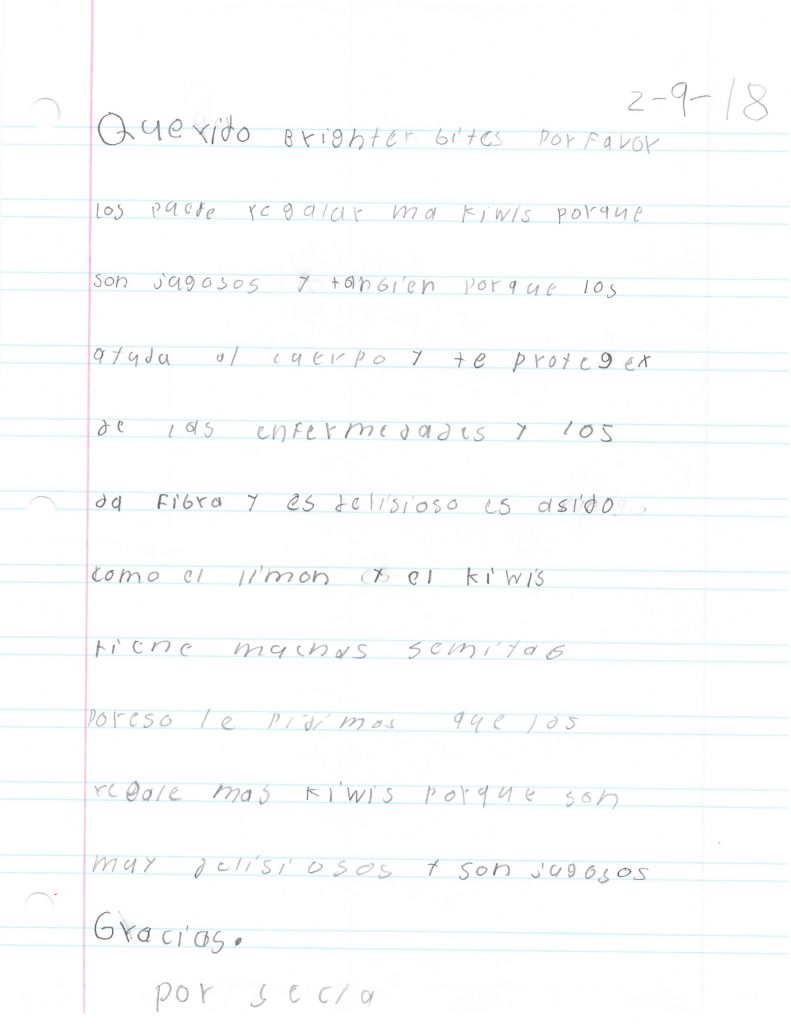 2-9-18
Querido Brighter bites por favor
los puede regalar ma kiwis porque
son jugosos y tanbien porque los
ayuda al cuerpo y te proteger
de las enfermedades y los
da Fibra y es delisioso es asido
como el limon y el kiwis
tiene muchas semitas
poreso le pidimos que los
regale mas kiwis porque son
muy delisiosos y son jugosos
Gracias.
por